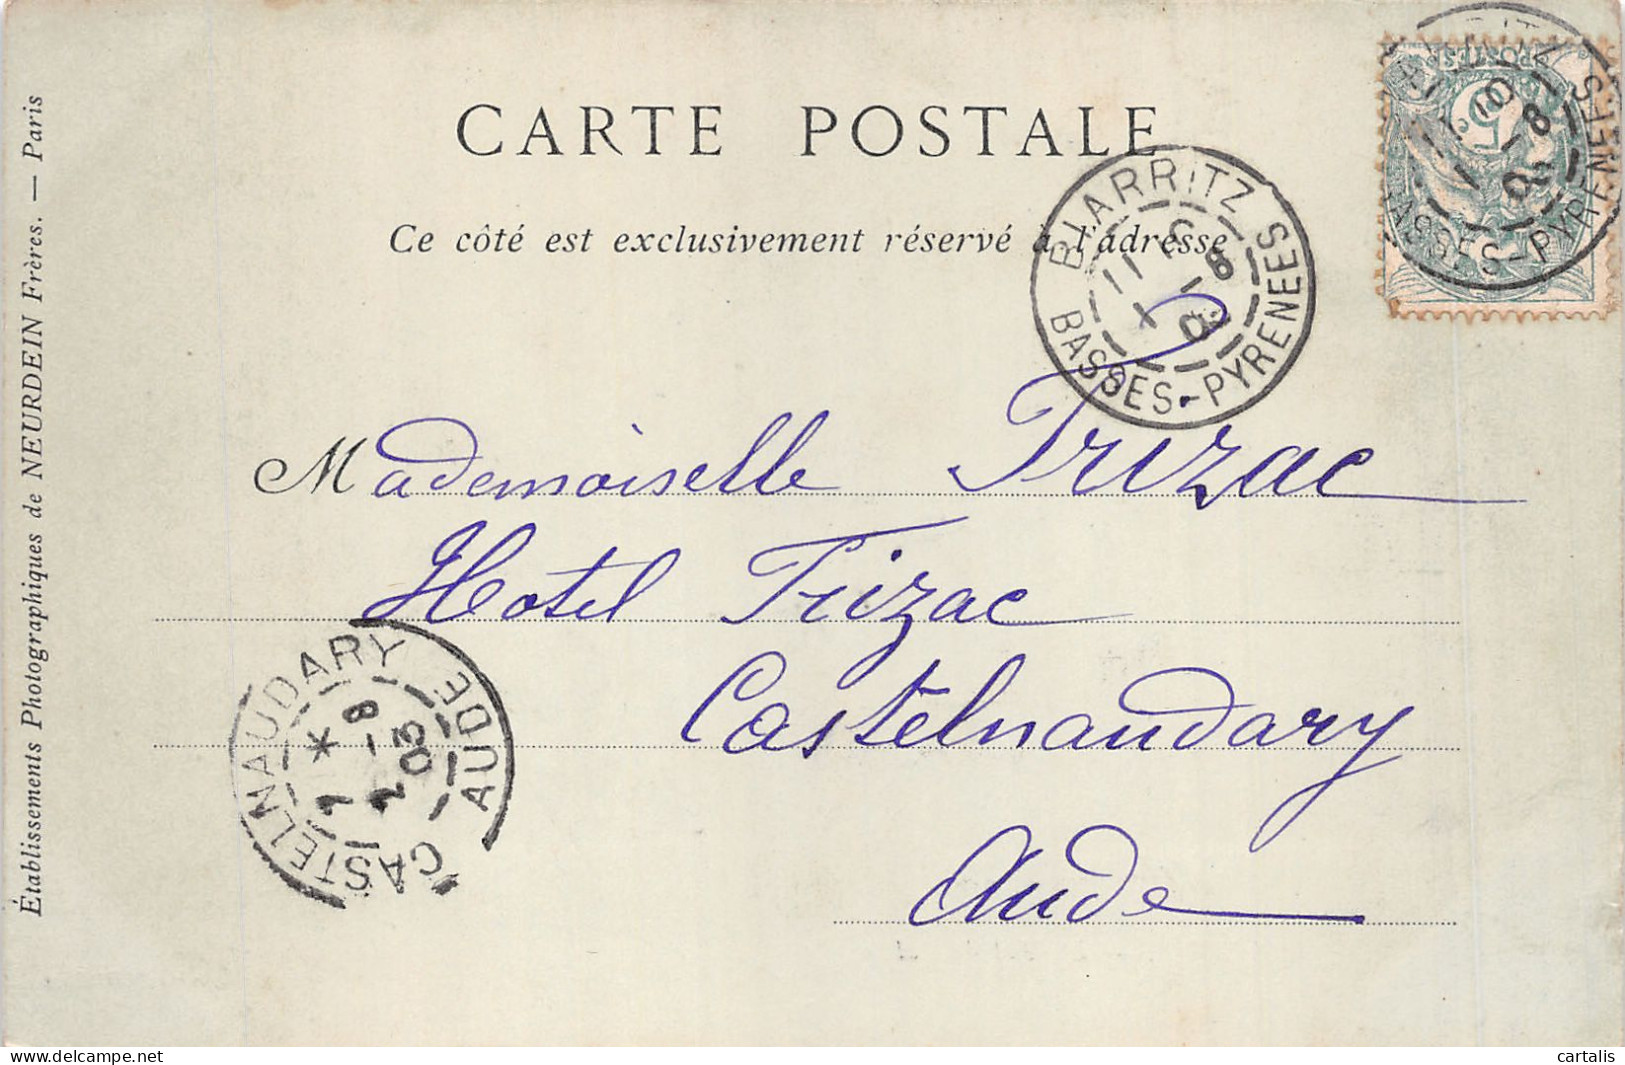 CARTE POSTALE
Ce côté est exclusivement réservé à l'adresse
Établissements Photographiques de NEURDEIN Frères. — Paris
POSTES
5c
BIARRITZ
BASSES-PYRENEES
BIARRITZ
BASSES-PYRENEES
Mademoiselle Trizac
Hotel Trizac
Castelnaudary
Aude
CASTELNAUDARY
AUDE
7 *
2 -8
03
www.delcampe.net
cartalis